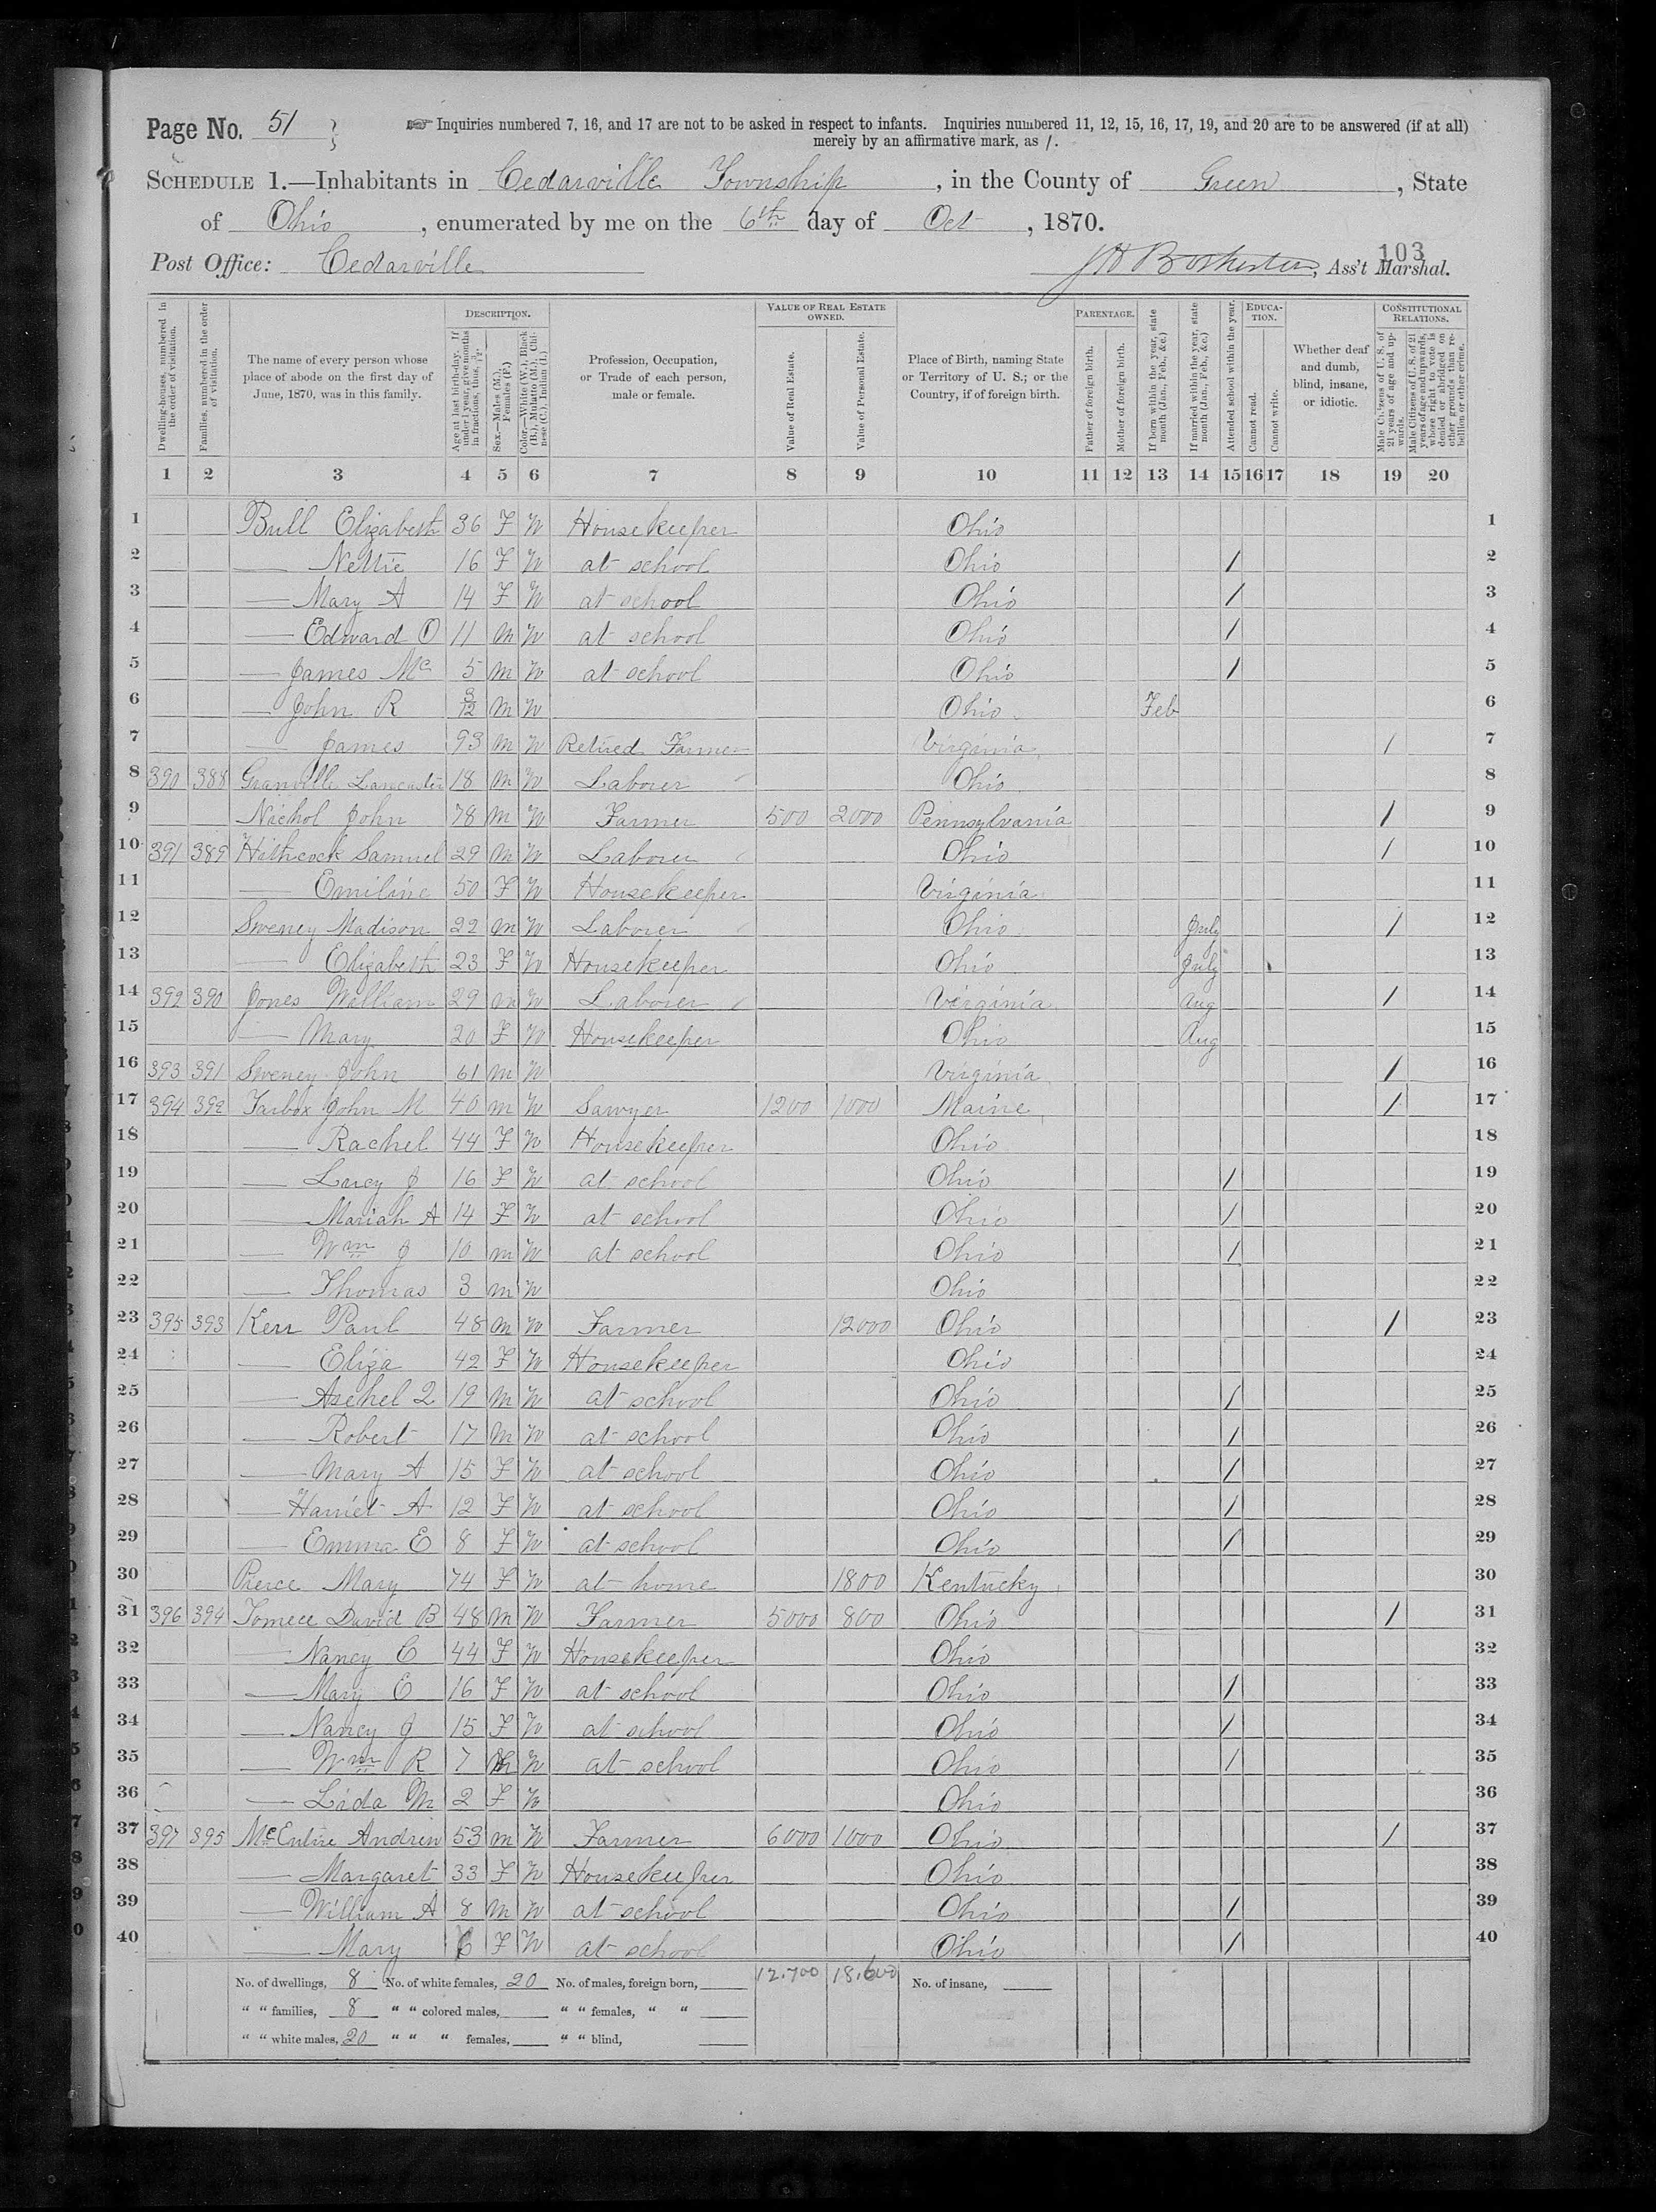 Page No. 51
☞ Inquiries numbered 7, 16, and 17 are not to be asked in respect to infants. Inquiries numbered 11, 12, 15, 16, 17, 19, and 20 are to be answered (if at all)
merely by an affirmative mark, as /.
SCHEDULE 1.—Inhabitants in Cedarville Township, in the County of Green, State
of Ohio, enumerated by me on the 6th day of Oct, 1870.
103
Post Office: Cedarville, Ass't Marshal.
Dwelling-houses, numbered in the order of visitation.
Families, numbered in the order of visitation.
The name of every person whose place of abode on the first day of June, 1870, was in this family.
DESCRIPTION.
Age at last birth-day. If under 1 year, give months in fractions, thus, 3/12.
Sex.—Males (M.), Females (F.)
Color.—White (W.), Black (B.), Mulatto (M.), Chinese (C.), Indian (I.)
Profession, Occupation, or Trade of each person, male or female.
VALUE OF REAL ESTATE OWNED.
Value of Real Estate.
Value of Personal Estate.
Place of Birth, naming State or Territory of U. S.; or the Country, if of foreign birth.
PARENTAGE.
Father of foreign birth.
Mother of foreign birth.
If born within the year, state month (Jan., Feb., &c.)
If married within the year, state month (Jan., Feb., &c.)
Attended school within the year.
EDUCATION.
Cannot read.
Cannot write.
Whether deaf and dumb, blind, insane, or idiotic.
CONSTITUTIONAL RELATIONS.
Male Citizens of U. S. of 21 years of age and upwards.
Male Citizens of U. S. of 21 years of age and upwards, whose right to vote is denied or abridged on other grounds than rebellion or other crime.
1 2 3 4 5 6 7 8 9 10 11 12 13 14 15 16 17 18 19 20
1 Bull Elizabeth 36 F W Housekeeper Ohio 1
2 — Nettie 16 F W at school Ohio / 2
3 — Mary A 14 F W at school Ohio / 3
4 — Edward O 11 M W at school Ohio / 4
5 — James Mc 5 M W at school Ohio / 5
6 — John R 3/12 M W Ohio Feb 6
7 — James 93 M W Retired Farmer Virginia / 7
8 390 388 Granville Lancaster 18 M W Laborer Ohio 8
9 Nichol John 78 M W Farmer 500 2000 Pennsylvania / 9
10 391 389 Hithcock Samuel 29 M W Laborer Ohio / 10
11 — Emiline 50 F W Housekeeper Virginia 11
12 Sweney Madison 22 M W Laborer Ohio July / 12
13 — Elizabeth 23 F W Housekeeper Ohio July 13
14 392 390 Jones William 29 M W Laborer Virginia Aug / 14
15 — Mary 20 F W Housekeeper Ohio Aug 15
16 393 391 Sweney John 61 M W Virginia / 16
17 394 392 Tarbox John M 40 M W Sawyer 1200 1000 Maine / 17
18 — Rachel 44 F W Housekeeper Ohio 18
19 — Lucy J 16 F W at school Ohio / 19
20 — Mariah A 14 F W at school Ohio / 20
21 — Wm J 10 M W at school Ohio / 21
22 — Thomas 3 M W Ohio 22
23 395 393 Kerr Paul 48 M W Farmer 12000 Ohio / 23
24 — Eliza 42 F W Housekeeper Ohio 24
25 — Asehel Q 19 M W at school Ohio / 25
26 — Robert 17 M W at school Ohio / 26
27 — Mary A 15 F W at school Ohio / 27
28 — Harriet A 12 F W at school Ohio / 28
29 — Emma E 8 F W at school Ohio / 29
30 Pierce Mary 74 F W at home 1800 Kentucky 30
31 396 394 David B 48 M W Farmer 5000 800 Ohio / 31
32 — Nancy C 44 F W Housekeeper Ohio 32
33 — Mary E 16 F W at school Ohio / 33
34 — Nancy J 15 F W at school Ohio / 34
35 — Wm R 7 M W at school Ohio / 35
36 — Lida M 2 F W Ohio 36
37 397 395 McEntire Andrew 53 M W Farmer 6000 1000 Ohio / 37
38 — Margaret 33 F W Housekeeper Ohio 38
39 — William A 8 M W at school Ohio / 39
40 — Mary 6 F W at school Ohio / 40
No. of dwellings, 8 No. of white females, 20 No. of males, foreign born, 12,700 18,600 No. of insane,
" " families, 8 " " colored males, " " females, " "
" " white males, 20 " " " females, " " blind,